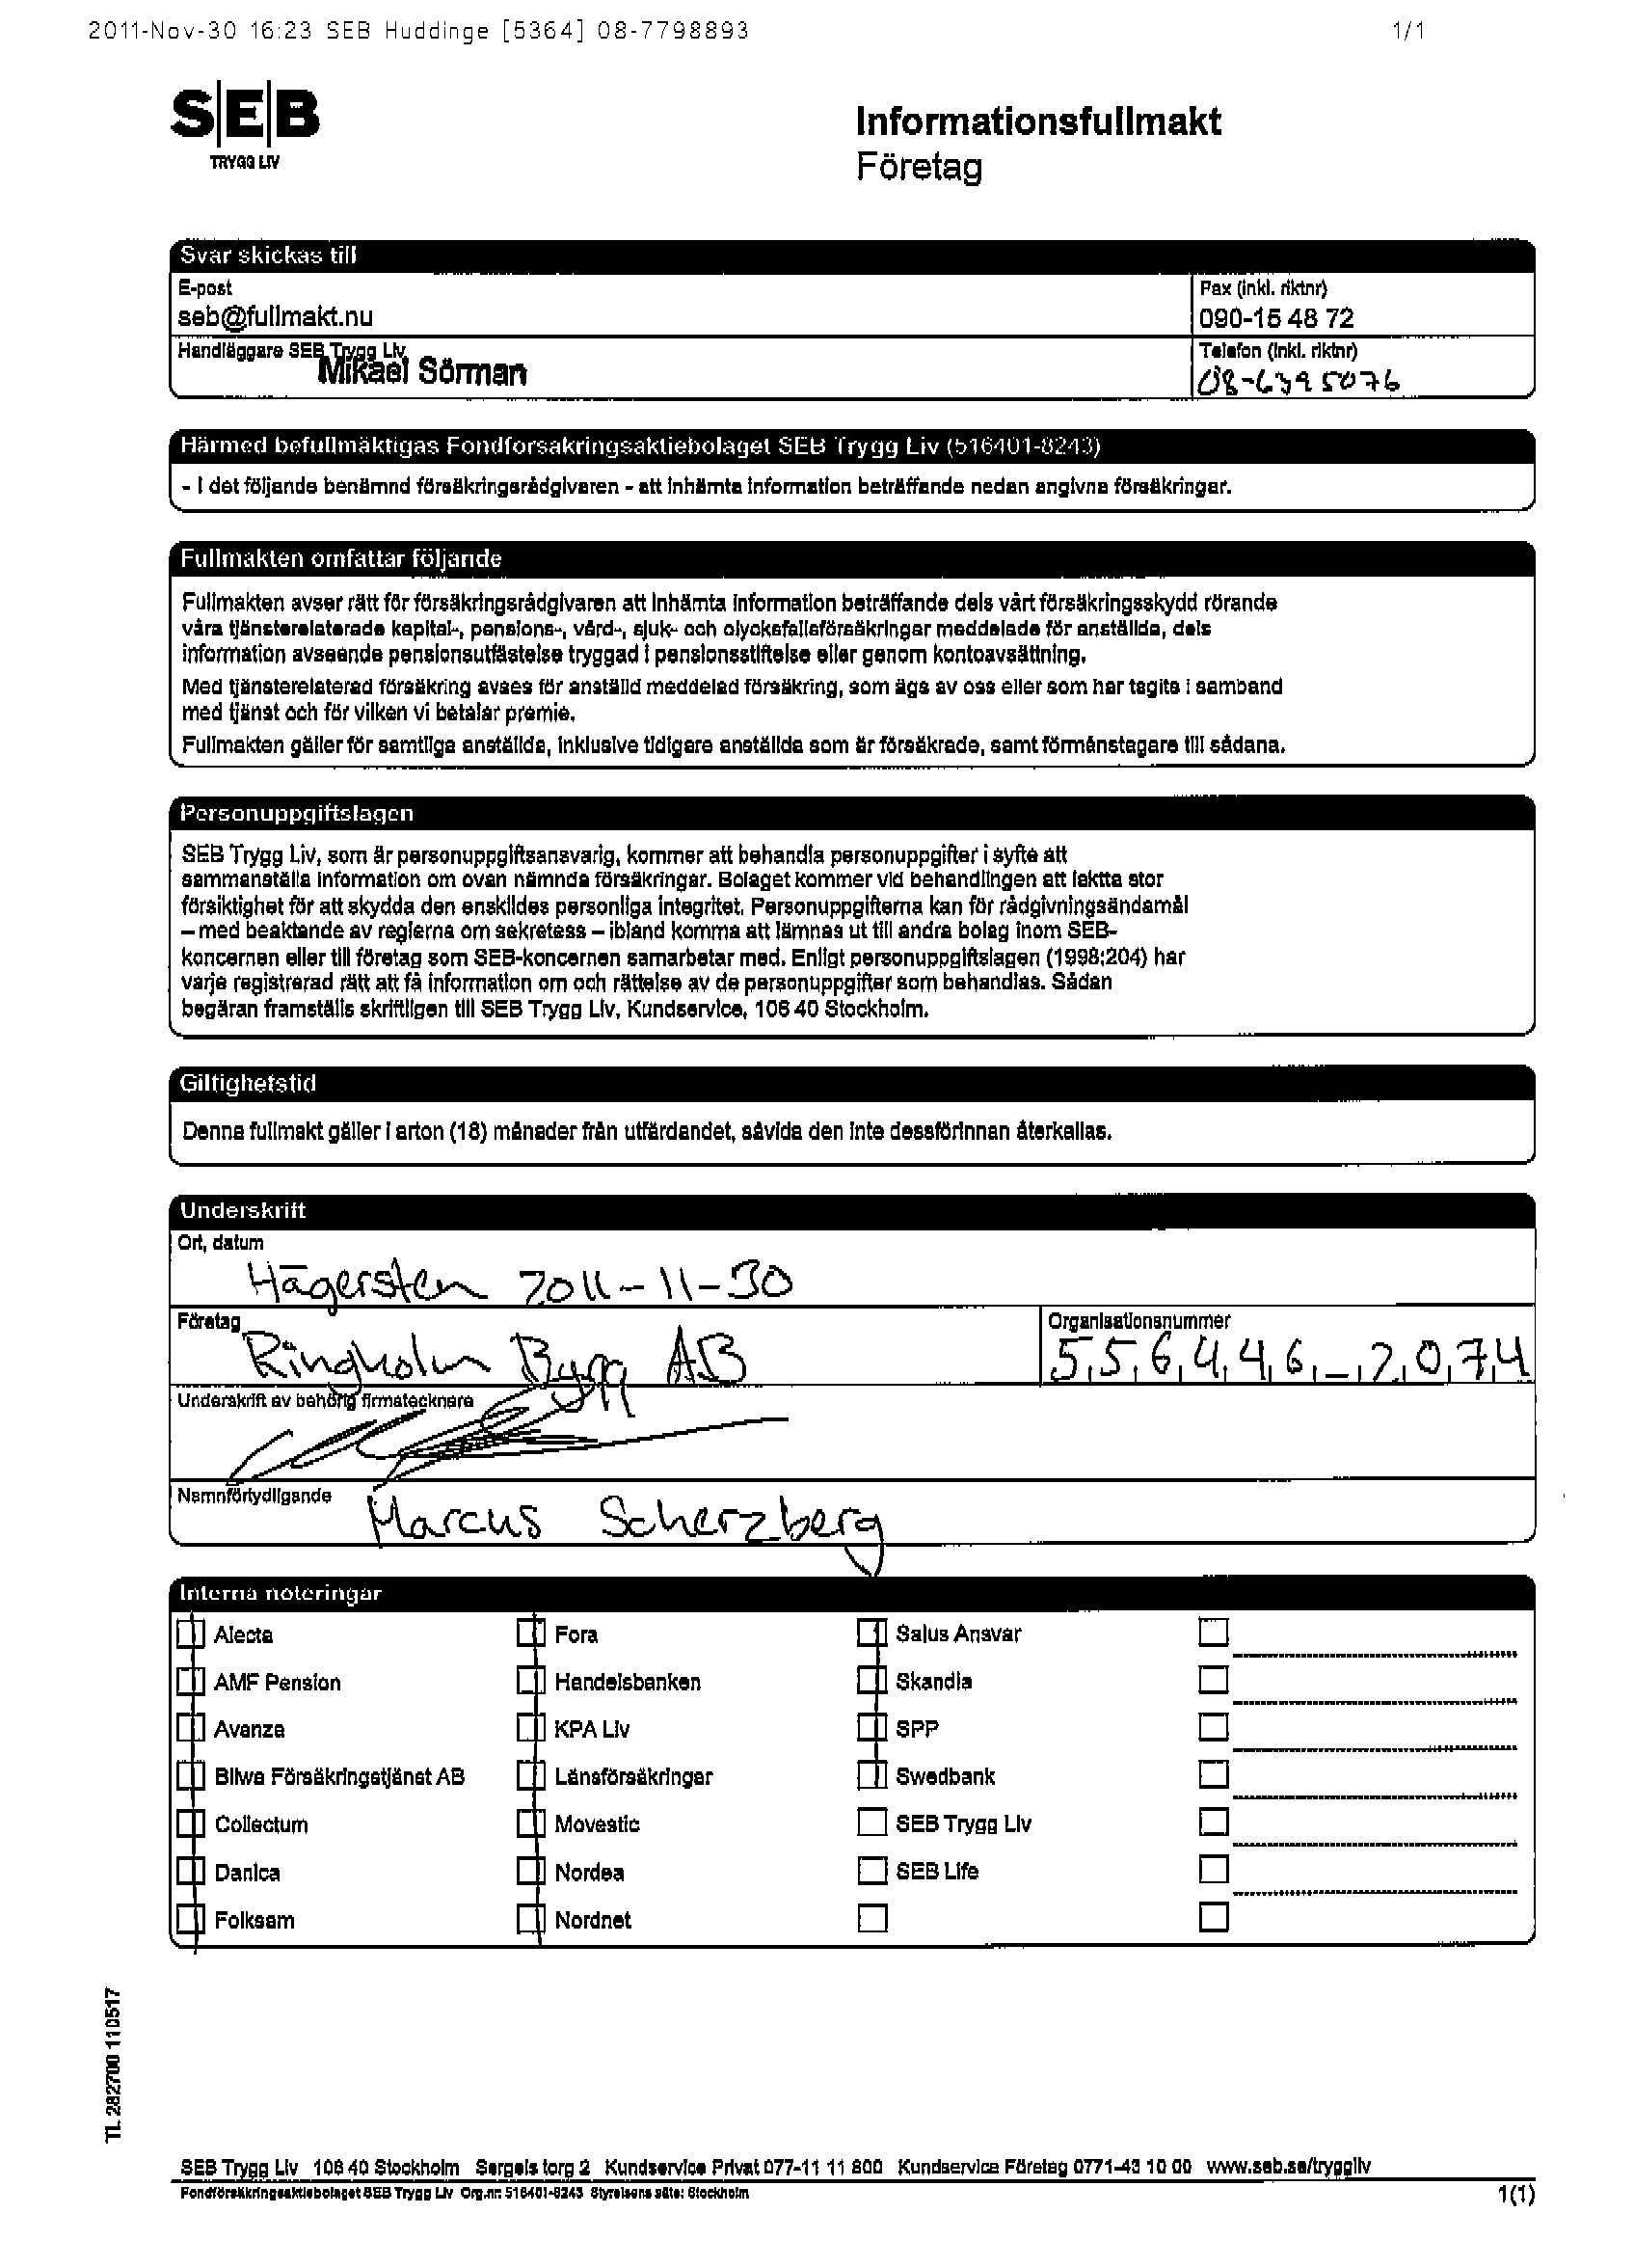 2011-Nov-30 16:23 SEB Huddinge [5364] 08-7798893 1/1
SEB
TRYGG LIV
Informationsfullmakt
Företag
Svar skickas till
E-post
seb@fullmakt.nu
Fax (inkl. riktnr)
090-15 48 72
Handläggare SEB Trygg Liv
Mikael Sörman
Telefon (inkl. riktnr)
08-639 5076
Härmed befullmäktigas Fondförsäkringsaktiebolaget SEB Trygg Liv (516401-8243)
- i det följande benämnd försäkringsrådgivaren - att inhämta information beträffande nedan angivna försäkringar.
Fullmakten omfattar följande
Fullmakten avser rätt för försäkringsrådgivaren att inhämta information beträffande dels vårt försäkringsskydd rörande
våra tjänsterelaterade kapital-, pensions-, vård-, sjuk- och olycksfallsförsäkringar meddelade för anställda, dels
information avseende pensionsutfästelse tryggad i pensionsstiftelse eller genom kontoavsättning.
Med tjänsterelaterad försäkring avses för anställd meddelad försäkring, som ägs av oss eller som har tagits i samband
med tjänst och för vilken vi betalar premie.
Fullmakten gäller för samtliga anställda, inklusive tidigare anställda som är försäkrade, samt förmånstagare till sådana.
Personuppgiftslagen
SEB Trygg Liv, som är personuppgiftsansvarig, kommer att behandla personuppgifter i syfte att
sammanställa information om ovan nämnda försäkringar. Bolaget kommer vid behandlingen att iaktta stor
försiktighet för att skydda den enskildes personliga integritet. Personuppgifterna kan för rådgivningsändamål
– med beaktande av reglerna om sekretess – ibland komma att lämnas ut till andra bolag inom SEB-
koncernen eller till företag som SEB-koncernen samarbetar med. Enligt personuppgiftslagen (1998:204) har
varje registrerad rätt att få information om och rättelse av de personuppgifter som behandlas. Sådan
begäran framställs skriftligen till SEB Trygg Liv, Kundservice, 106 40 Stockholm.
Giltighetstid
Denna fullmakt gäller i arton (18) månader från utfärdandet, såvida den inte dessförinnan återkallas.
Underskrift
Ort, datum
Hägersten 2011-11-30
Företag
Ringholm Bygg AB
Organisationsnummer
556446-2074
Underskrift av behörig firmatecknare
Namnförtydligande
Marcus Scherzberg
Interna noteringar
Alecta Fora Salus Ansvar
AMF Pension Handelsbanken Skandia
Avanza KPA Liv SPP
Bliwa Försäkringstjänst AB Länsförsäkringar Swedbank
Collectum Movestic SEB Trygg Liv
Danica Nordea SEB Life
Folksam Nordnet
TL 282700 110517
SEB Trygg Liv 106 40 Stockholm Sergels torg 2 Kundservice Privat 077-11 11 800 Kundservice Företag 0771-43 10 00 www.seb.se/tryggliv
Fondförsäkringsaktiebolaget SEB Trygg Liv Org.nr: 516401-8243 Styrelsens säte: Stockholm 1(1)